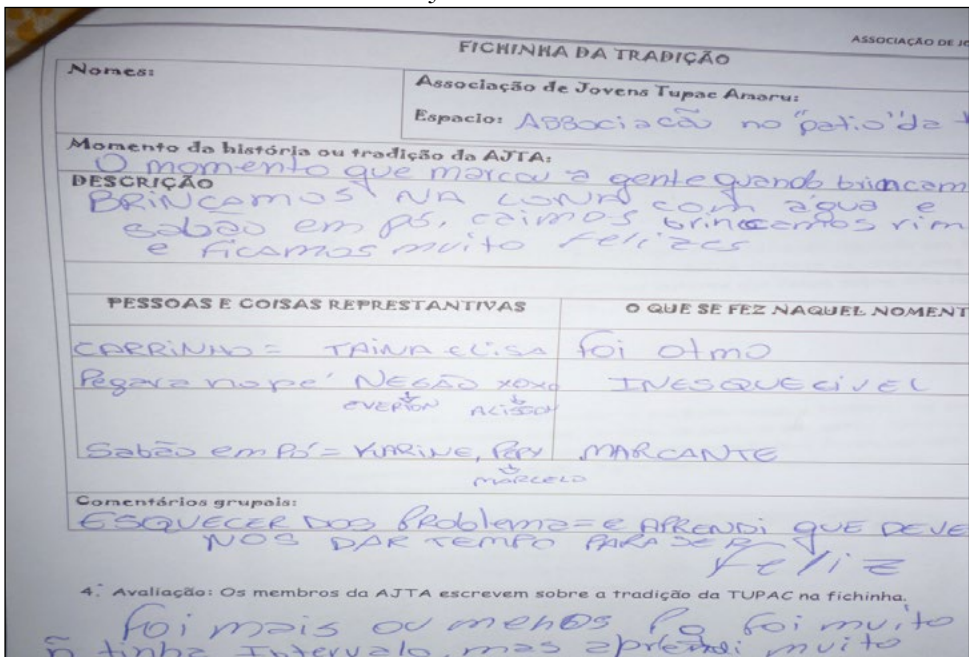 ASSOCIAÇÃO DE JO
FICHINHA DA TRADIÇÃO
Nomes:
Associação de Jovens Tupac Amaru:
Espacio: ABBociacão no "patio" da
Momento da história ou tradição da AJTA:
O momento que marcou a gente quando brincam
DESCRIÇÃO
BRINCAMOS NA LONA com água e
sabão em pó, caimos brincamos rim
e ficamos muito felizes
PESSOAS E COISAS REPRESTANTIVAS
O QUE SE FEZ NAQUEL NOMENT
CARRINHO = TAINA ELISA
foi otmo
Pegava no pé NEGÃO xoxo
INESQUECIVEL
EVERTON ALISSON
Sabão em Pó = KARINE, PEPY
MARCANTE
MARCELO
Comentários grupais:
ESQUECER DOS PRoblema= e APRENDi QUE DEVE
NOS DAR TEMPO PARA SER
feliz
4. Avaliação: Os membros da AJTA escrevem sobre a tradição da TUPAC na fichinha.
foi mais ou menos Po foi muito
ñ tinha Intervalo, mas aprendi muito